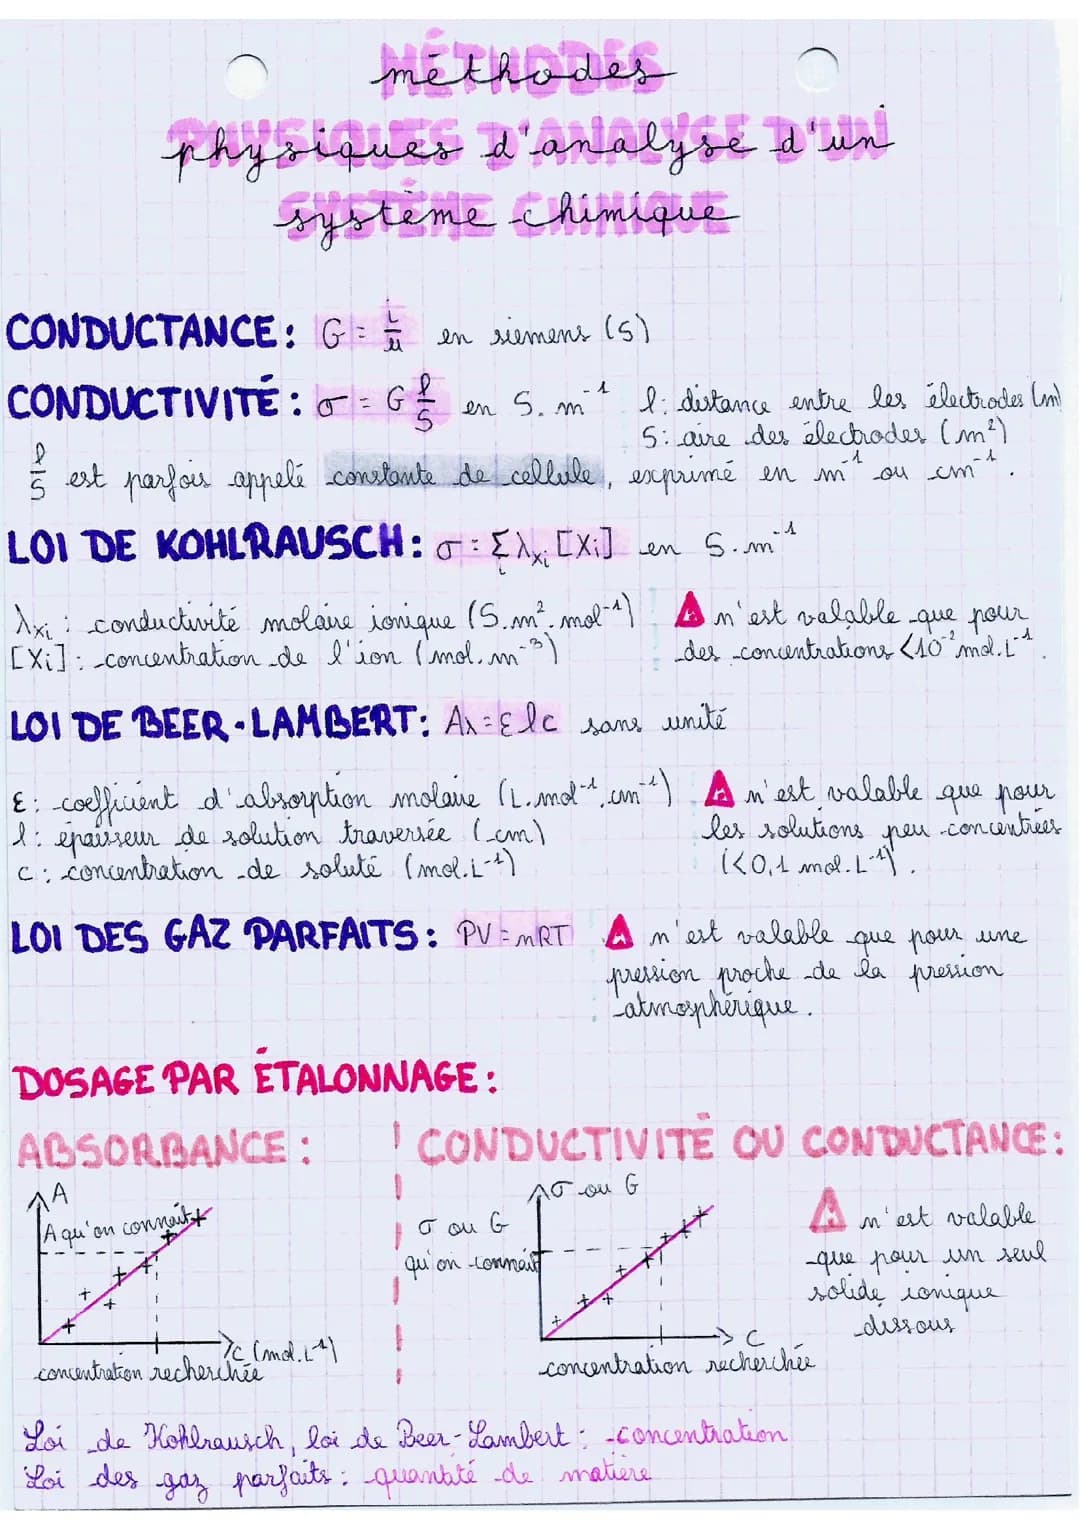 MÉTHODES
méthodes
PHYSIQUES D'ANALYSE D'UN
physiques d'analyse d'un
SYSTÈME CHIMIQUE
système chimique
CONDUCTANCE : G = i/u en siemens (S)
CONDUCTIVITÉ : σ = G l/S en S.m⁻¹
l : distance entre les électrodes (m)
S : aire des électrodes (m²)
l/S est parfois appelé constante de cellule, exprimé en m⁻¹ ou cm⁻¹.
LOI DE KOHLRAUSCH : σ = Σᵢ λxᵢ [Xi] en S.m⁻¹
λxᵢ : conductivité molaire ionique (S.m².mol⁻¹)
[Xi] : concentration de l'ion (mol.m⁻³)
⚠ n'est valable que pour
des concentrations <10⁻² mol.L⁻¹.
LOI DE BEER-LAMBERT : Aλ = εlc sans unité
ε : coefficient d'absorption molaire (L.mol⁻¹.cm⁻¹)
l : épaisseur de solution traversée (cm)
c : concentration de soluté (mol.L⁻¹)
⚠ n'est valable que pour
les solutions peu concentrées
(<0,1 mol.L⁻¹).
LOI DES GAZ PARFAITS : PV = nRT
⚠ n'est valable que pour une
pression proche de la pression
atmosphérique.
DOSAGE PAR ÉTALONNAGE :
ABSORBANCE :
A
A qu'on connait
C (mol.L⁻¹)
concentration recherchée
CONDUCTIVITÉ OU CONDUCTANCE :
σ ou G
σ ou G
qu'on connait
C
concentration recherchée
⚠ n'est valable
que pour un seul
solide ionique
dissous
Loi de Kohlrausch, loi de Beer-Lambert : concentration
Loi des gaz parfaits : quantité de matière